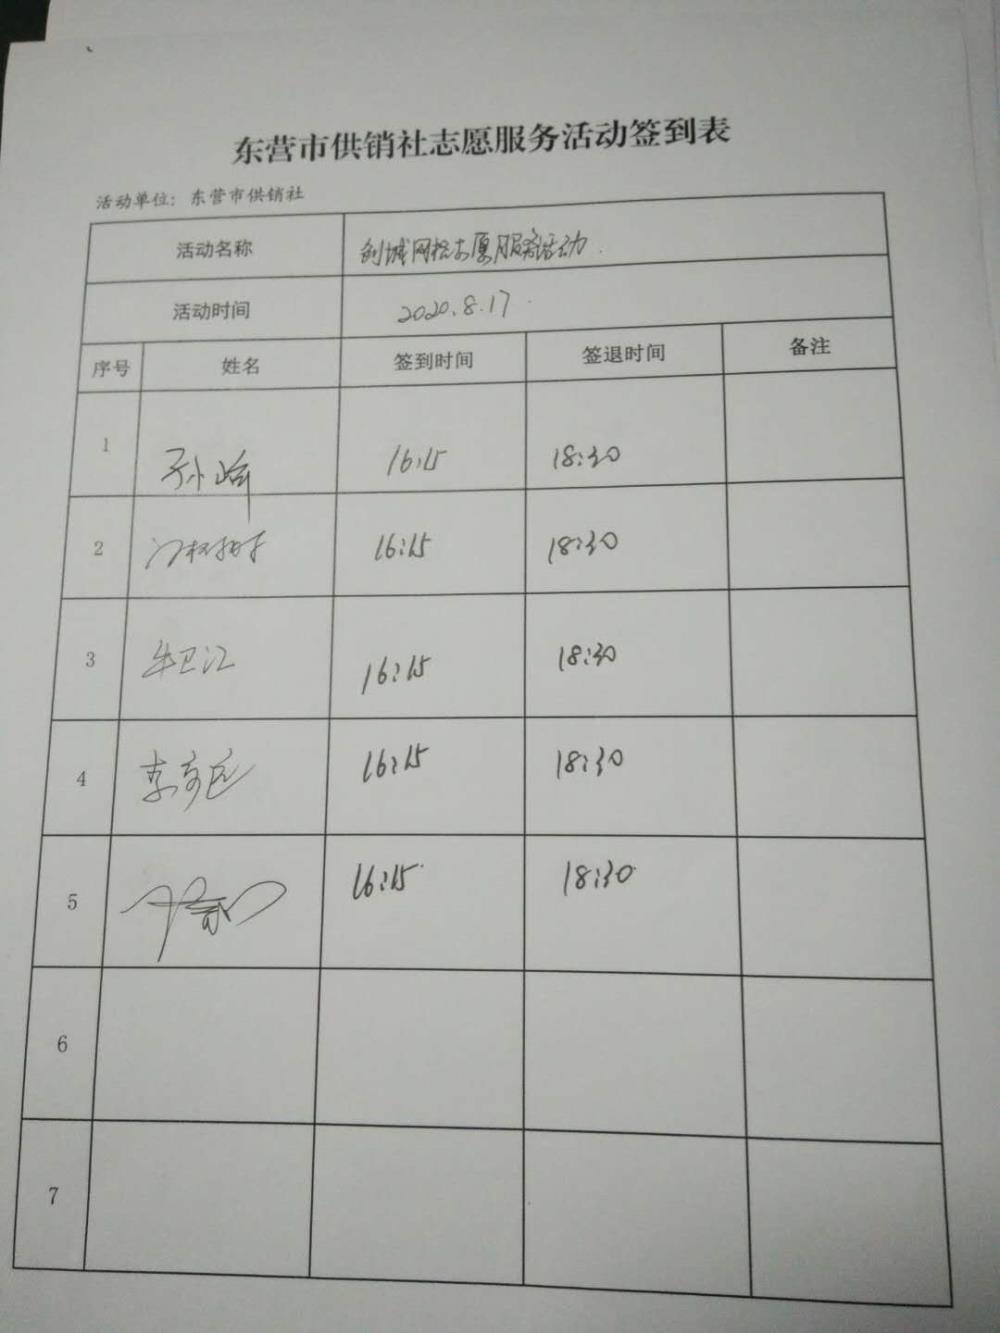 东营市供销社志愿服务活动签到表
活动单位：东营市供销社
活动名称 创城网格志愿服务活动.
活动时间 2020.8.17.
序号 姓名 签到时间 签退时间 备注
1 孙峰 16:15 18:30
2 16:15 18:30
3 牟卫江 16:15 18:30
4 16:15 18:30
5 16:15 18:30
6
7